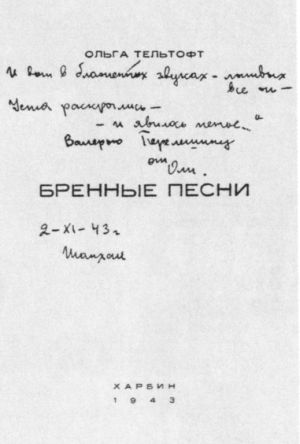 ОЛЬГА ТЕЛЬТОФТ
И вот в блаженных звуках –
все –
Уста раскрылись –
– и явилось пенье..."
Валерию Перелешину
от
Оли.
БРЕННЫЕ ПЕСНИ
2–XI–43 г.
Шанхай
ХАРБИН
1943